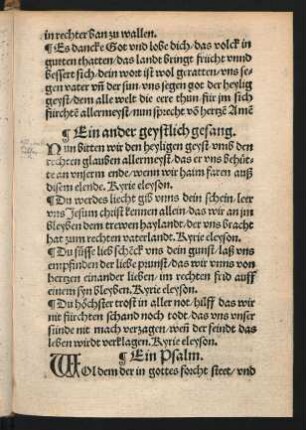 in rechter ban zu wallen.
¶ Es dancke Got vnd lobe dich/das volck in
gutten thatten/das land bringt frucht vnnd
bessert sich/dein wort ist wol geratten/vns se-
gen vater vñ der sun/vns segen got der heylig
geyst/dem alle welt die eere thun/für jm sich
fürchtẽ allermeyst/nun sprecht võ hertzẽ Amẽ
¶ Ein ander geystlich gesang.
Nun bitten wir den heyligen geyst/vmb den
rechten glauben allermeyst/das er vns behüt-
te an vnserm ende/wenn wir haim faren auß
disem elende. Kyrie eleyson.
¶ Du werdes liecht gib vnns dein schein/leer
vns Jesum christ kennen allein/das wir an jm
bleyben dem trewen haylandt/der vns bracht
hat zum rechten vaterlandt. Kyrie eleyson.
¶ Du süsse lieb schẽck vns dein gunst/laß vns
empfinden der liebe prunst/das wir vnns von
hertzen einander lieben/im rechten frid auff
einem syn bleyben. Kyrie eleyson.
¶ Du höchster trost in aller not/hilff das wir
nit fürchten schand noch todt/das vns vnser
sünde nit mach verzagen/weñ der feindt das
leben wirdt verklagen. Kyrie eleyson.
¶ Ein Psalm.
WOl dem der in gottes forcht steet/vnd